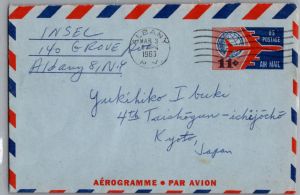 INSEL
140 GROVE
Albany 8, N.Y.
ALBANY
MAR 3
1963
N.Y.
US
POSTAGE
11¢
AIR MAIL
Yukihiko Ibuki
4th Taishōgun-ichōjochō
Kyoto,
Japan
AÉROGRAMME • PAR AVION